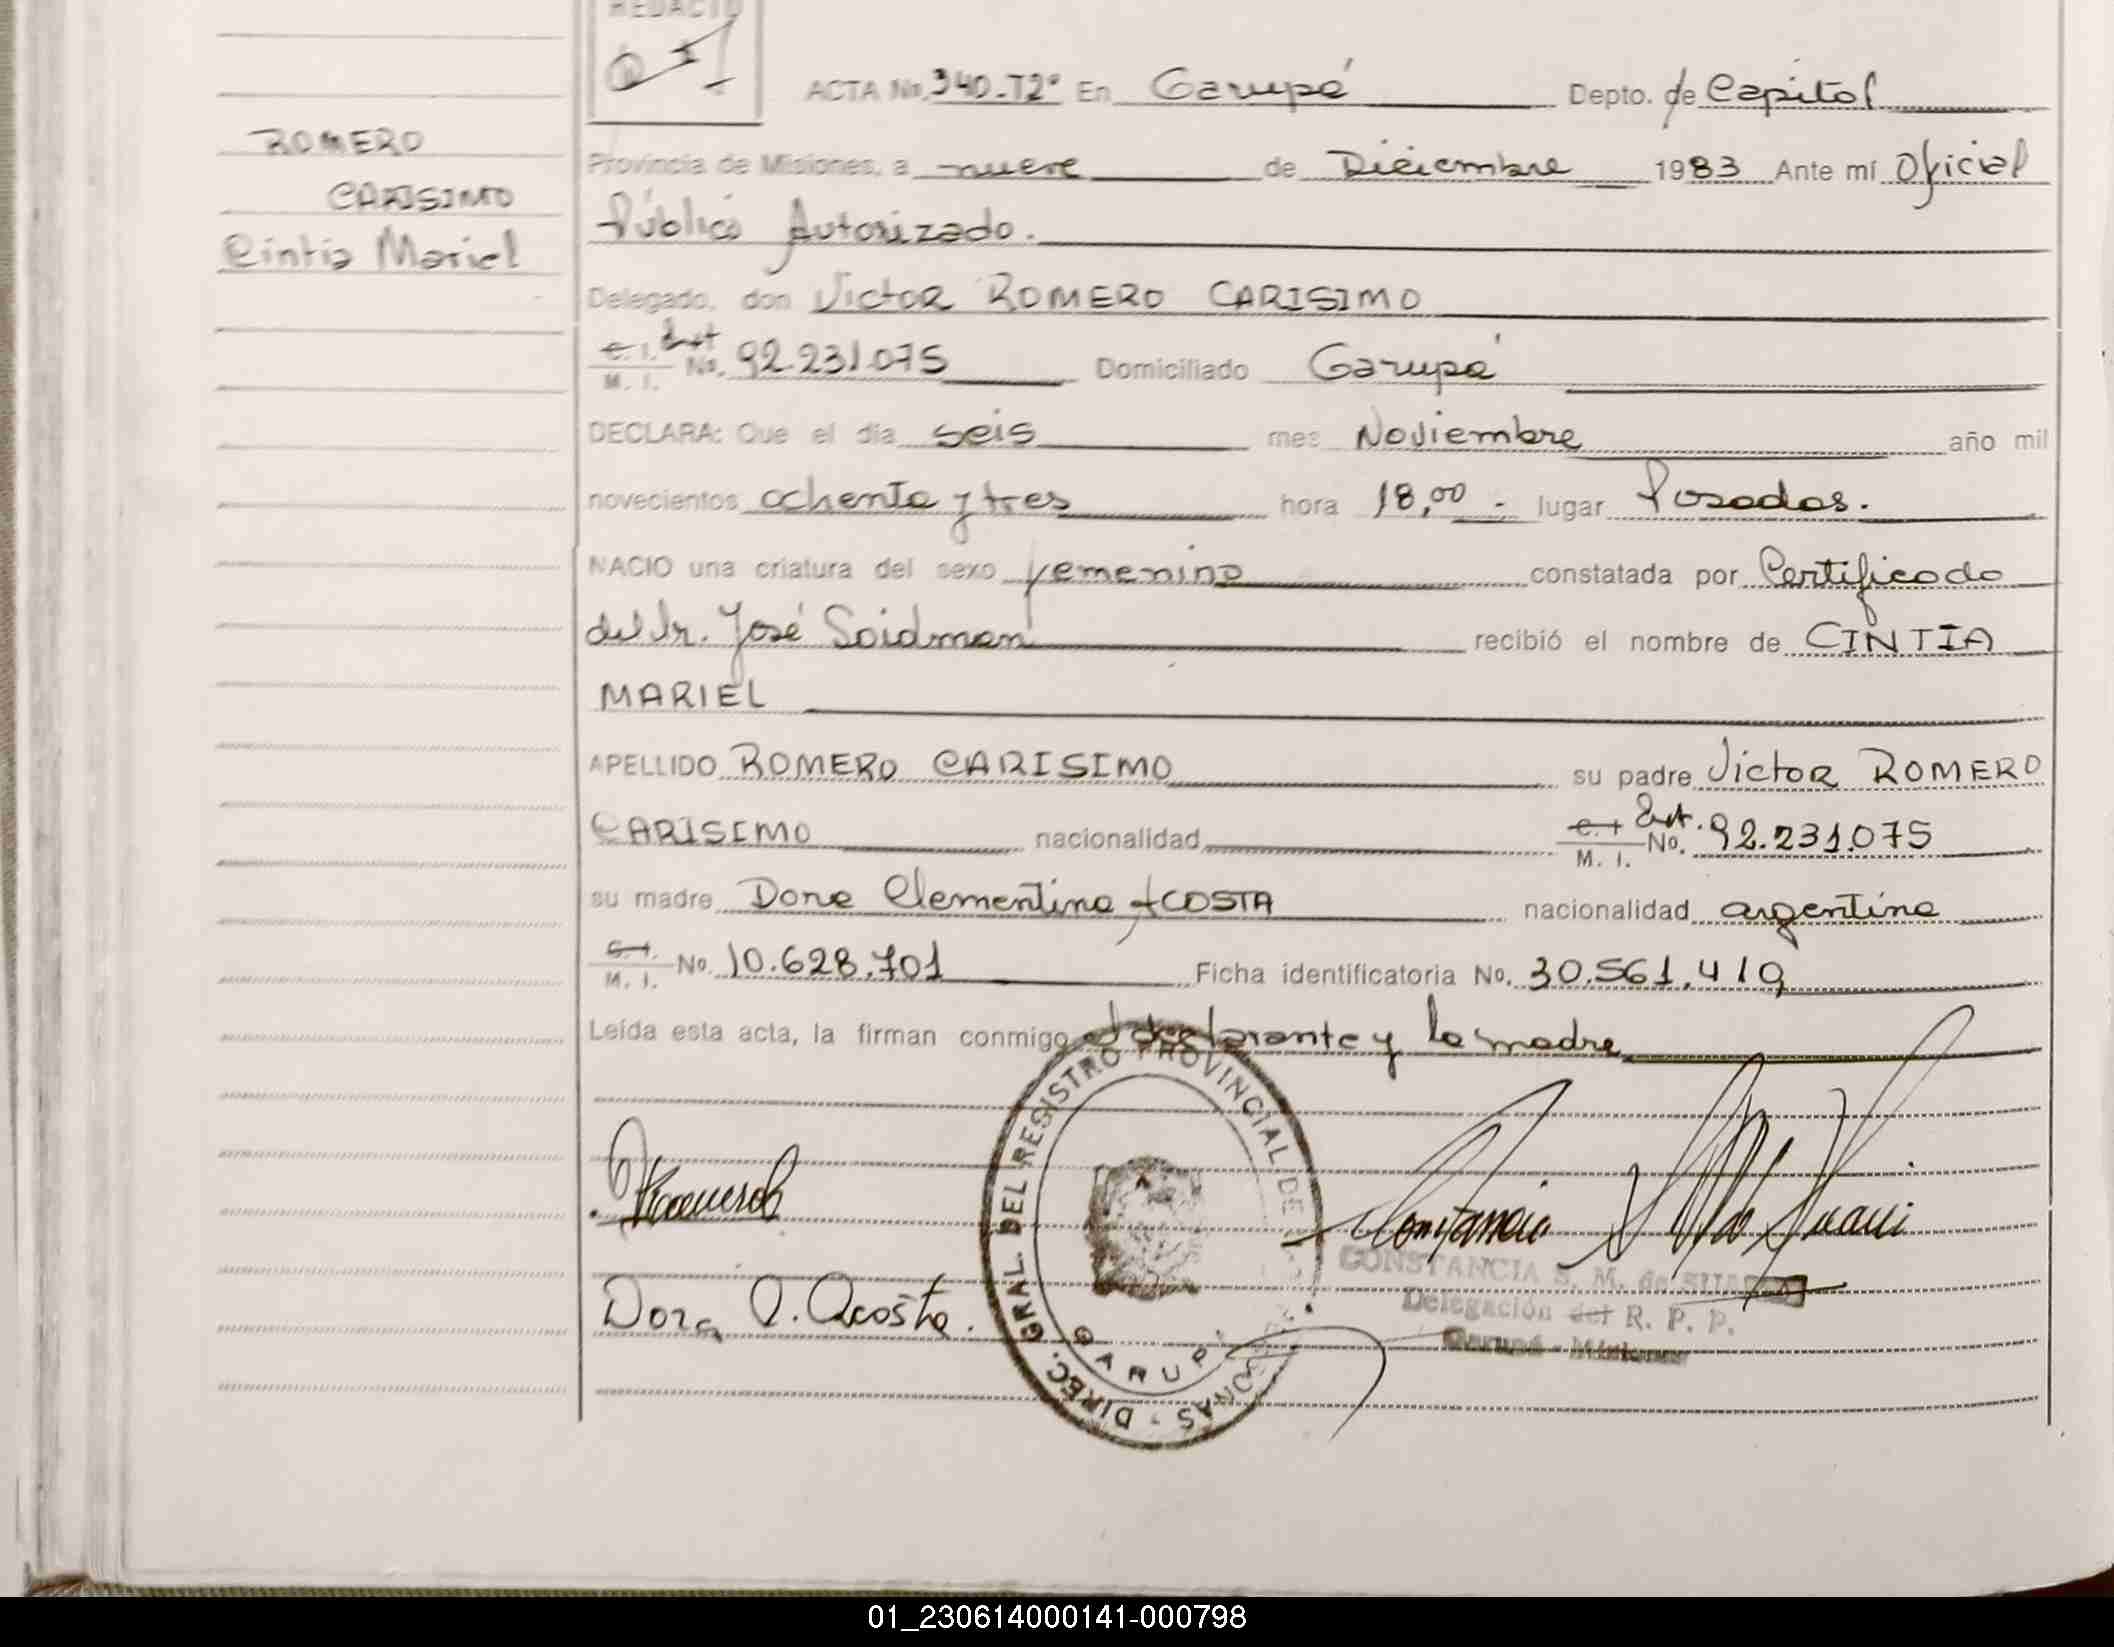 REDACTO
ROMERO
CARISIMO
Cintia Mariel
ACTA No. 340-T2° En Garupá Depto. de Capital
Provincia de Misiones, a nueve de Diciembre 1983 Ante mí Oficial
Público Autorizado.
Delegado, don Victor ROMERO CARISIMO
C. I. Ext M. I. No. 92.231.075 Domiciliado Garupá
DECLARA: Que el día seis mes Noviembre año mil
novecientos ochenta y tres hora 18,00 - lugar Posadas.
NACIO una criatura del sexo femenino constatada por Certificado
del Dr. José Soidman recibió el nombre de CINTIA
MARIEL
APELLIDO ROMERO CARISIMO su padre Victor ROMERO
CARISIMO nacionalidad C. I. Ext. M. I. No. 92.231.075
su madre Dora Clementina ACOSTA nacionalidad argentina
C. I. M. I. No. 10.628.701 Ficha identificatoria No. 30.561.419
Leída esta acta, la firman conmigo el declarante y la madre
DIREC. GRAL. DEL REGISTRO PROVINCIAL DE LAS PERSONAS
GARUPA
Constancia
CONSTANCIA S. M. de
Delegación del R. P. P.
Garupá - Misiones
Dora C. Acosta.
01_230614000141-000798